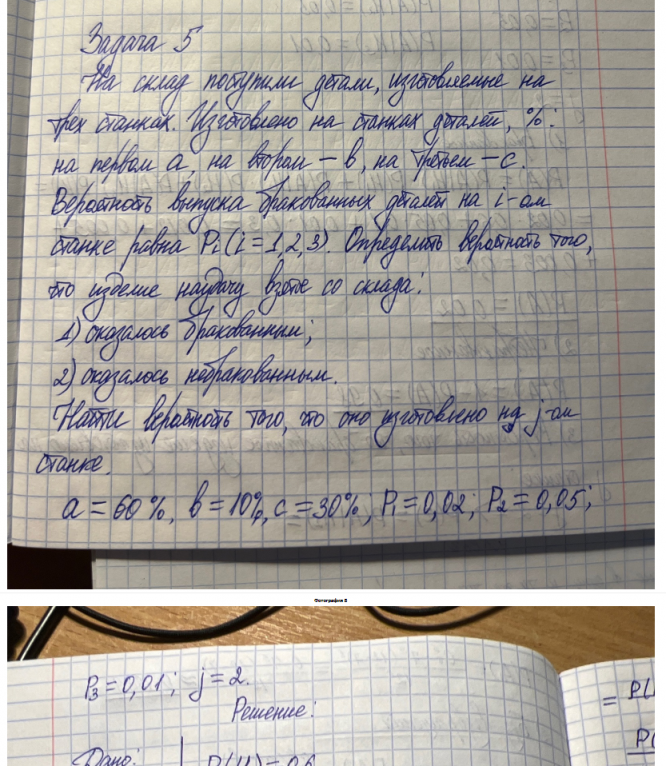 Задача 5
На склад поступили детали, изготовляемые на
трех станках. Изготовлено на станках деталей, %:
на первом а, на втором – в, на третьем – с.
Вероятность выпуска бракованных деталей на i-ом
станке равна Pi (i = 1, 2, 3). Определить вероятность того,
что изделие наудачу взятое со склада:
1) оказалось бракованным;
2) оказалось небракованным.
Найти вероятность того, что оно изготовлено на j-ом
станке.
а = 60%, в = 10%, с = 30%; P₁ = 0,02; P₂ = 0,05;
Фотография 8
P₃ = 0,01; j = 2.
Решение:
Дано: